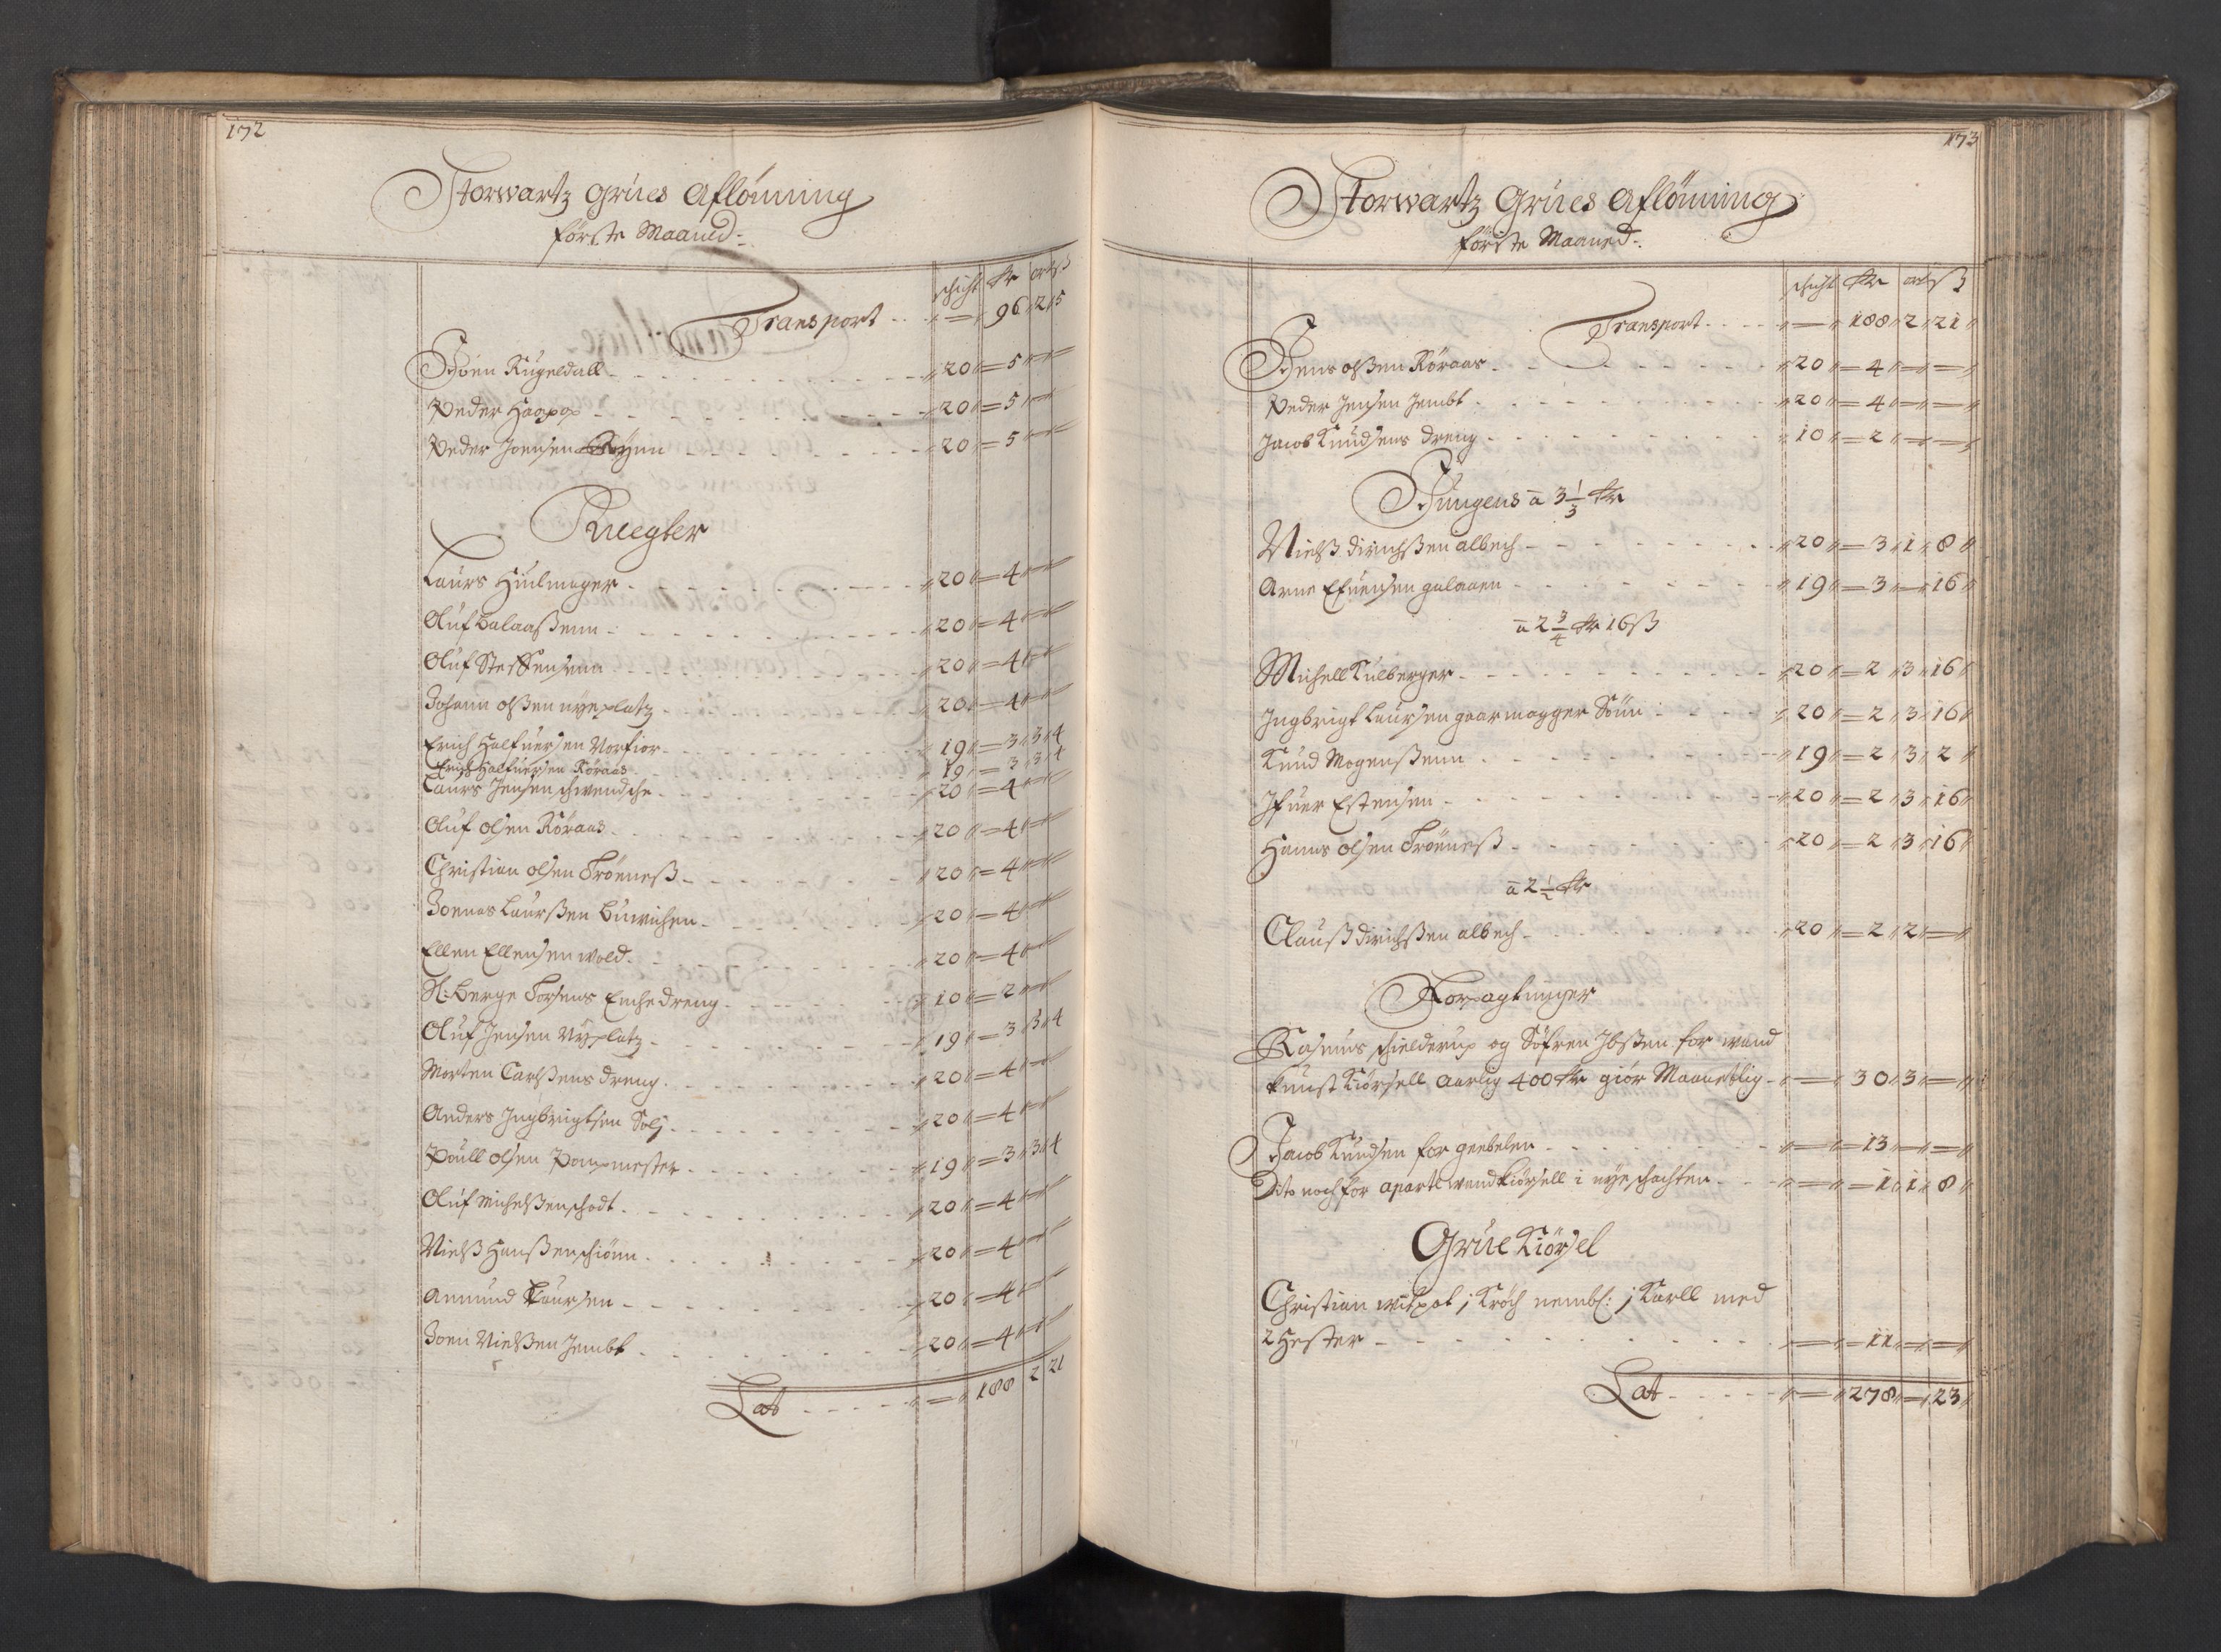 172
Storwartz Grues Aflönning
förste Maaned
schicht Rr ort ß
Transport - - 96 2 5
Joen Kugeldall - 20 5
Peder Haapop - 20 5
Peder Joensen - 20 5
Knegter
Laurs Hiulmager - 20 4
Oluf Balaaßenn - 20 4
Oluf Steffensenn - 20 4
Johann olßen nyeplatz - 20 4
Erich Halfuersen Vorfior - 19 3 3 4
Erich Halfuersen Röraas - 19 3 3 4
Laurs Jensen schwendsche - 20 4
Oluf olsen Röraas - 20 4
Christian olsen Tröeneß - 20 4
Joenas Laurßen Buvichen - 20 4
Ellen Ellensen wold - 20 4
H: Berge Torsens Enche dreng - 10 2
Oluf Jensen Nyplatz - 19 3 3 4
Morten Carlßens dreng - 20 4
Anders Ingbrigtsen Selj - 20 4
Poull olsen Pompmester - 19 3 3 4
Oluf Michelßen schodt - 20 4
Nielß Hanßen schiönn - 20 4
Anmund Laursen - 20 4
Joen Nielßen Jembt - 20 4
Lat - - 188 2 21
173
Storwartz Grues Aflönning
förste Maaned
schicht Rr ort ß
Transport - - 188 2 21
Jens olßen Röraas - 20 4
Peder Jensen Jembt - 20 4
Jacob Knudsens dreng - 10 2
Jungens a 3 1/3 Rr
Nielß dirichßen albech - 20 3 1 8
Arne Efuensen galaaen - 19 3 - 16
a 2 3/4 Rr 16 ß
Michell Kulberger - 20 2 3 16
Ingbrigt Laursen gaarmagger Sönn - 20 2 3 16
Knud Mogenßenn - 19 2 3 2
Ifuer Estensen - 20 2 3 16
Hanns olsen Tröeneß - 20 2 3 16
a 2 1/2 Rr
Clauß dirichßen albech - 20 2 2
Forpagtninger
Rasmus schielderup og Söfren Ibßen for wand
kunst Kiörsell Aarlig 400 Rr giör Maanetlig - 30 3
Jacob Knudsen for geebelen - 13
Dito noch for aparte wand kiörsell i nye schachten - 1 1 8
Grue Kiörsel
Christian witpot j Kröch nembl: j Karll med
2 Hester - 11
Lat - - 278 - 23